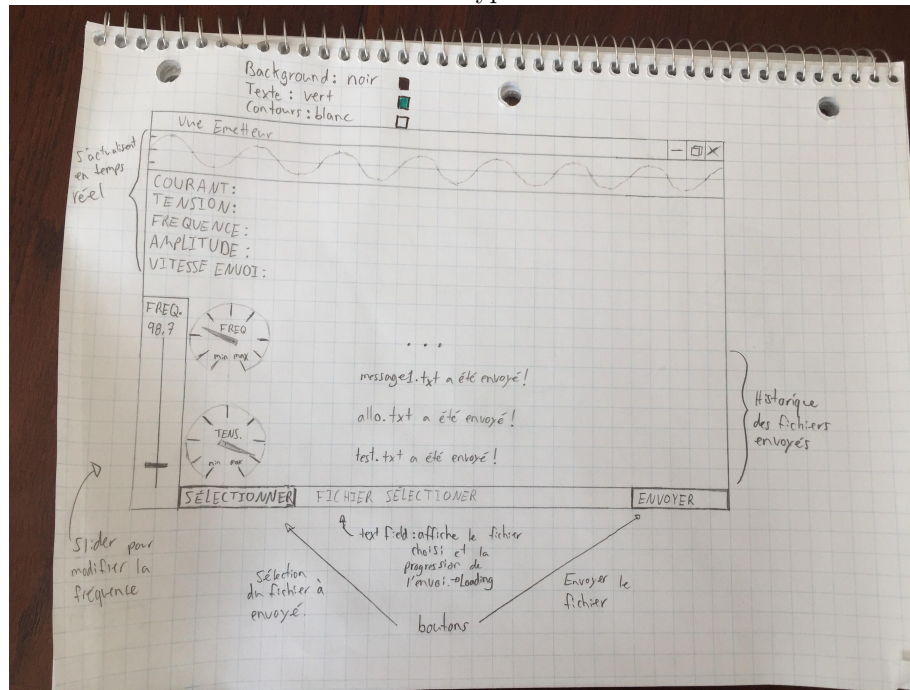 Background: noir
Texte : vert
Contours : blanc
Vue Emetteur
S'actualisent
en temps
réel
COURANT:
TENSION:
FREQUENCE:
AMPLITUDE :
VITESSE ENVOI :
FREQ.
98,7
FREQ
min max
TENS.
min max
...
message1.txt a été envoyé!
allo.txt a été envoyé!
test.txt a été envoyé!
Historique
des fichiers
envoyés
SÉLECTIONNER
FICHIER SÉLECTIONER
ENVOYER
Slider pour
modifier la
fréquence
Sélection
du fichier à
envoyé.
text field : affiche le fichier
choisi et la
progression de
l'envoi.→Loading
Envoyer le
fichier
boutons